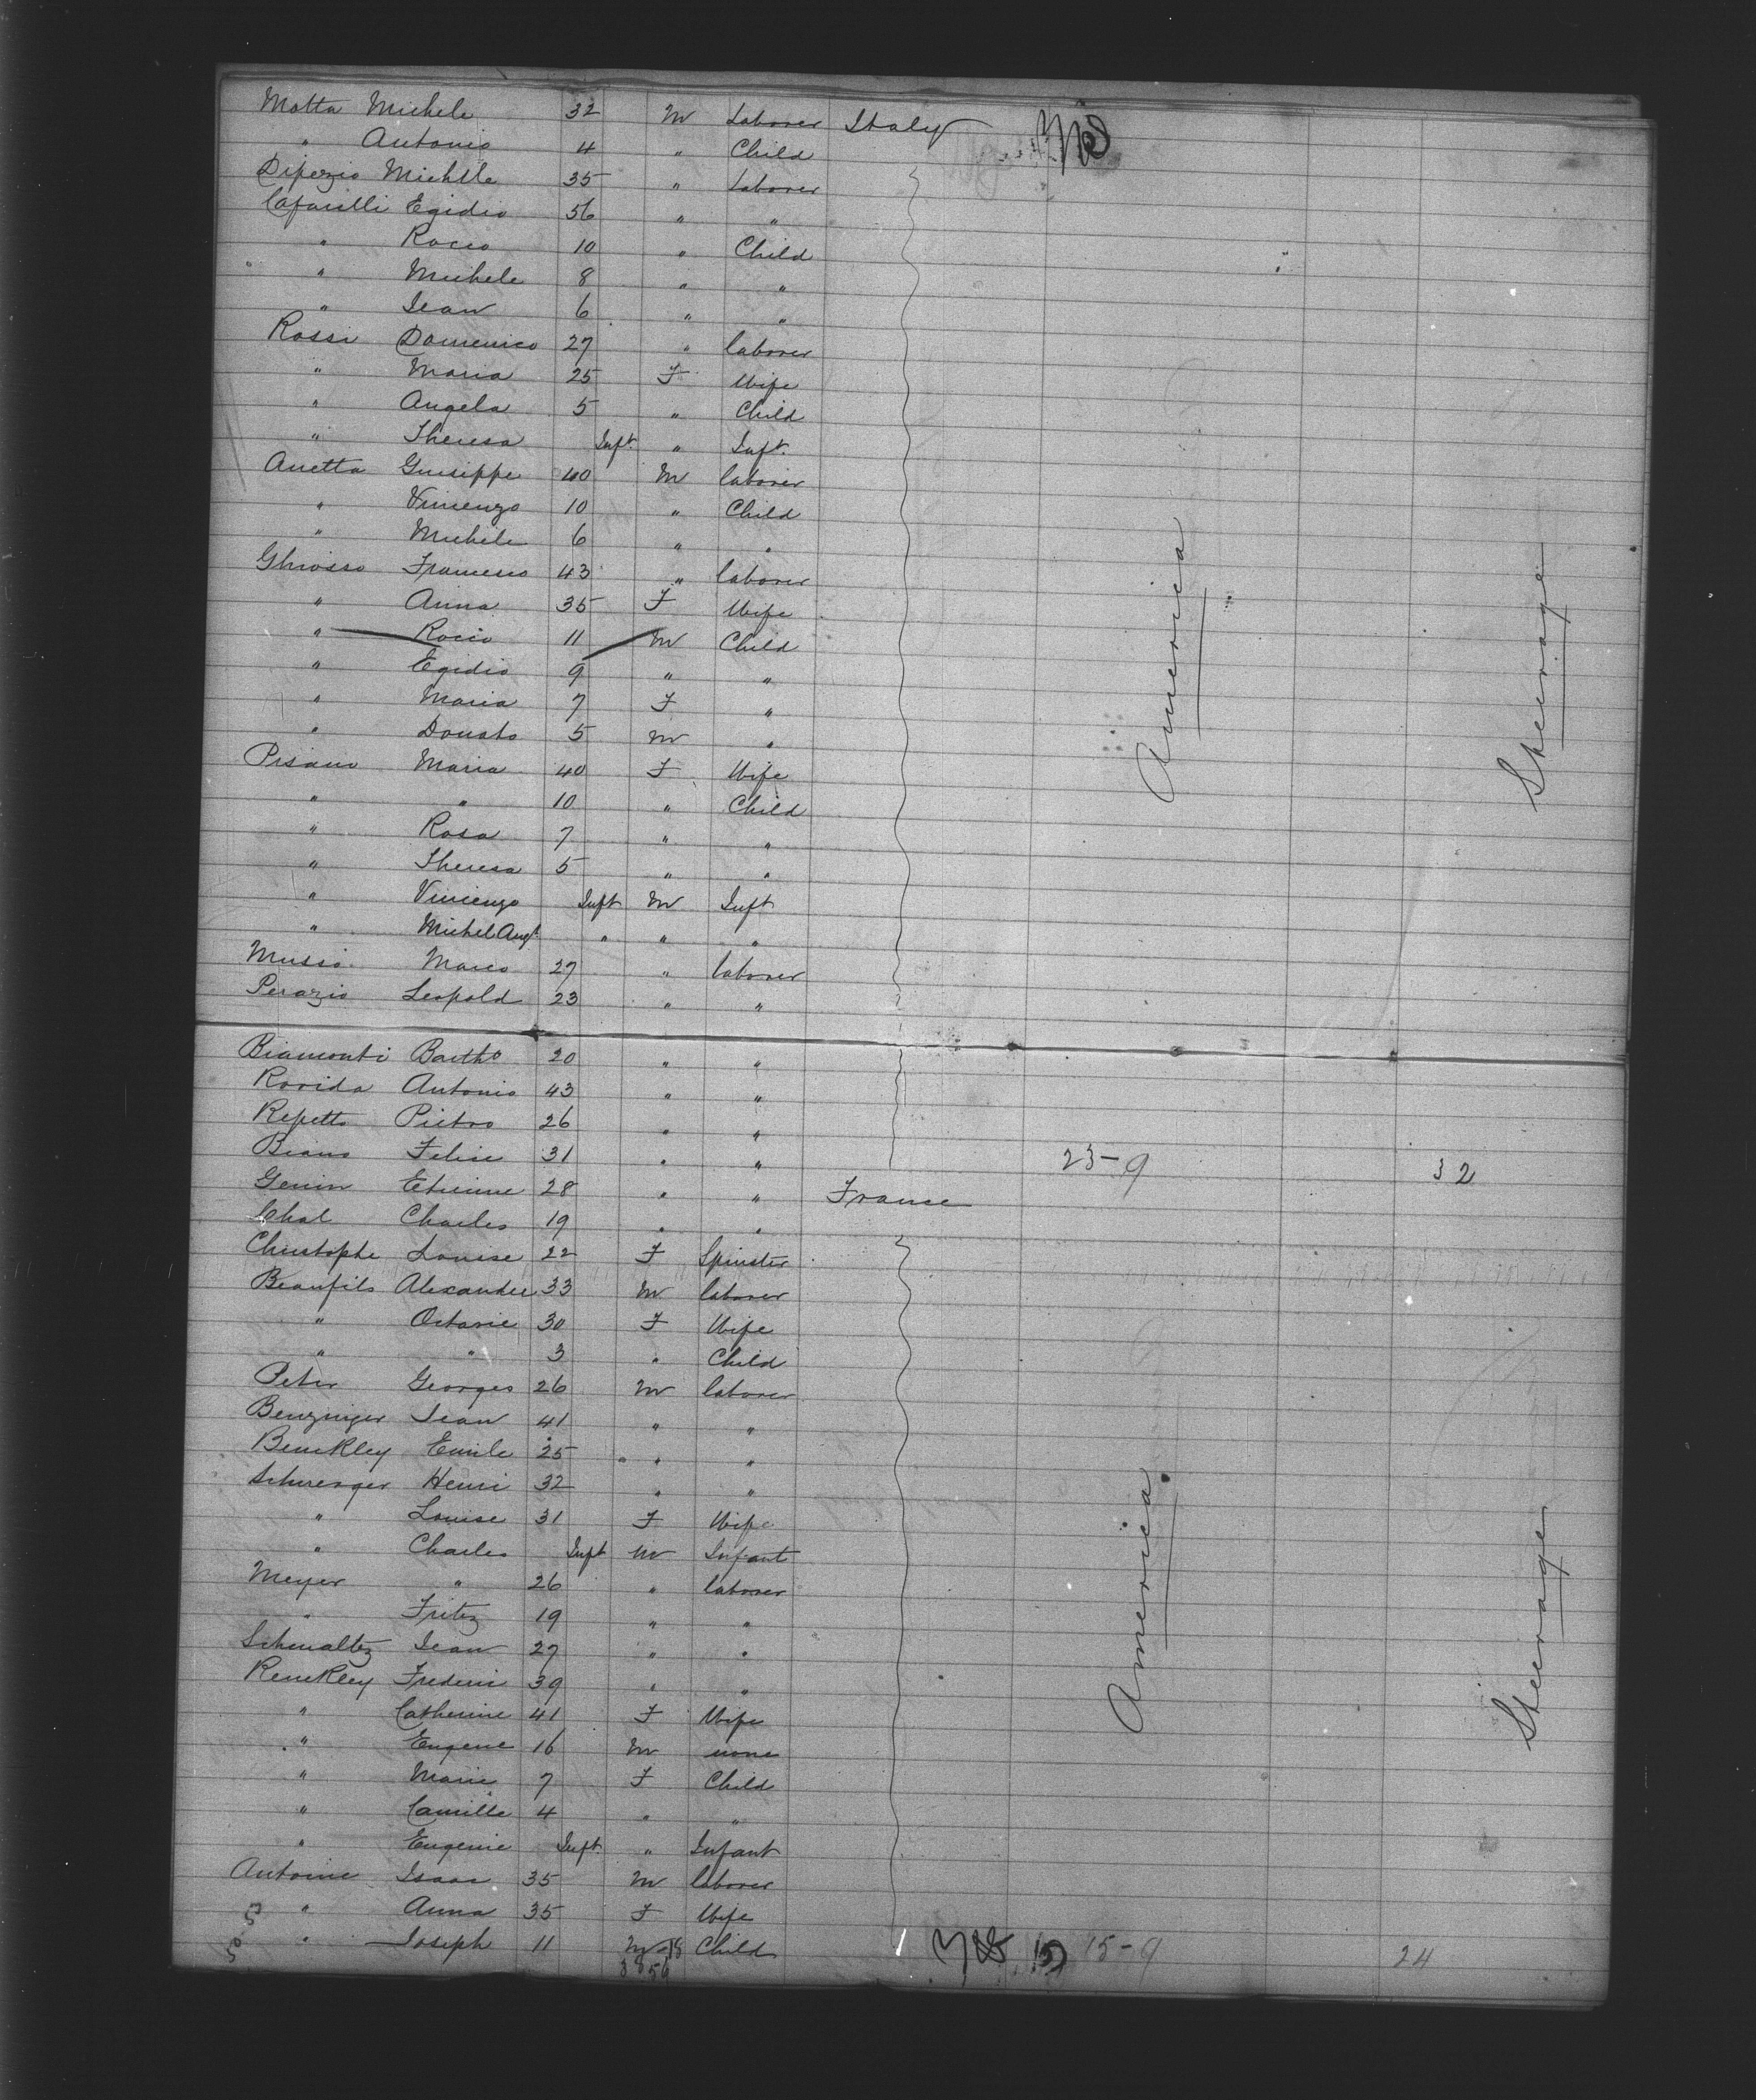 Motta Michele 32 M Laborer Italy
" Antonio 4 " Child
Dipezio Michele 35 " Laborer
Cafarelli Egidio 56 " "
" Rocco 10 " Child
" Michele 8 " "
" Jean 6 " "
Rossi Domenico 27 " laborer
" Maria 25 F Wife
" Angela 5 " Child
" Theresa Inft " Inft.
Anetta Guiseppe 40 M laborer
" Vincenzo 10 " Child
" Michele 6 " "
Ghiosso Francesco 43 " laborer
" Anna 35 F Wife
" Rocco 11 M Child
" Egidio 9 " "
" Maria 7 F "
" Donato 5 M "
Pisano Maria 40 F Wife
" " 10 " Child
" Rosa 7 " "
" Theresa 5 " "
" Vincenzo Inft M Inft
" Michel Ang. " " "
Musio Marco 27 " laborer
Perazio Leopold 23 " "
Biamonti Bartho 20 " "
Rovida Antonio 43 " "
Repetto Pietro 26 " "
Biano Felice 31 " " 23-9 32
Genin Etienne 28 " " France
Chat Charles 19 " "
Christophe Louise 22 F Spinster
Beaufils Alexandre 33 M laborer
" Octavie 30 F Wife
" " 3 " Child
Peter Georges 26 M laborer
Benzinger Jean 41 " "
Benckley Emile 25 " " "
Schwenger Henri 32 " "
" Louise 31 F Wife
" Charles Inft M Infant
Meyer " 26 " laborer
" Fritz 19 " "
Schmaltz Jean 27 " "
Renckley Frederic 39 " "
" Catherine 41 F Wife
" Eugene 16 M none
" Marie 7 F Child
" Camille 4 " "
" Eugenie Inft. " Infant
Antoine Isaac 35 M laborer
" Anna 35 F Wife
" Joseph 11 M Child 15-9 24
America
Steerage
America
Steerage